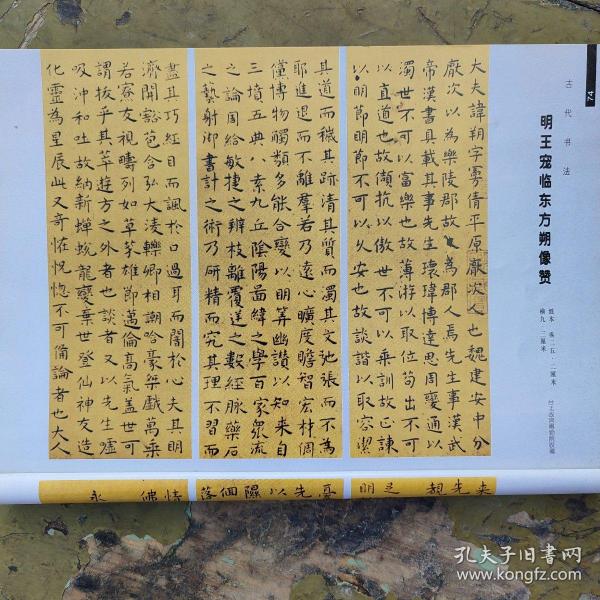 74
古代书法
明王宠临东方朔像赞
纸本 纵二五·二厘米
横九·三厘米
大夫諱朔字曼倩平原厭次人也魏建安中分
厭次以為樂陵郡故又為郡人焉先生事漢武
帝漢書具載其事先生瓌瑋博達思周變通以
濁世不可以富樂也故薄游以取位苟出不可
以直道也故頡抗以傲世不可以垂訓故正諫
以明節明節不可以久安也故談諧以取容潔
其道而穢其跡清其質而濁其文弛張而不為
耶進退而不離羣若乃遠心曠度贍智宏材倜
儻博物觸類多能合變以明筭幽讚以知來自
三墳五典八索九丘陰陽圖緯之學百家衆流
之論周給敏捷之辯枝離覆逆之數經脉藥石
之藝射御書計之術乃研精而究其理不習而
盡其巧經目而諷於口過耳而闇於心夫其明
濟開豁苞含弘大凌轢卿相謿哈豪桀戲萬乘
若寮友視疇列如草芥雄節邁倫高氣蓋世可
謂拔乎其萃遊方之外者也談者又以先生噓
吸沖和吐故納新蟬蛻龍變棄世登仙神友造
化靈為星辰此又奇怪恍惚不可備論者也大人
孔夫子旧书网
www.kongfz.com